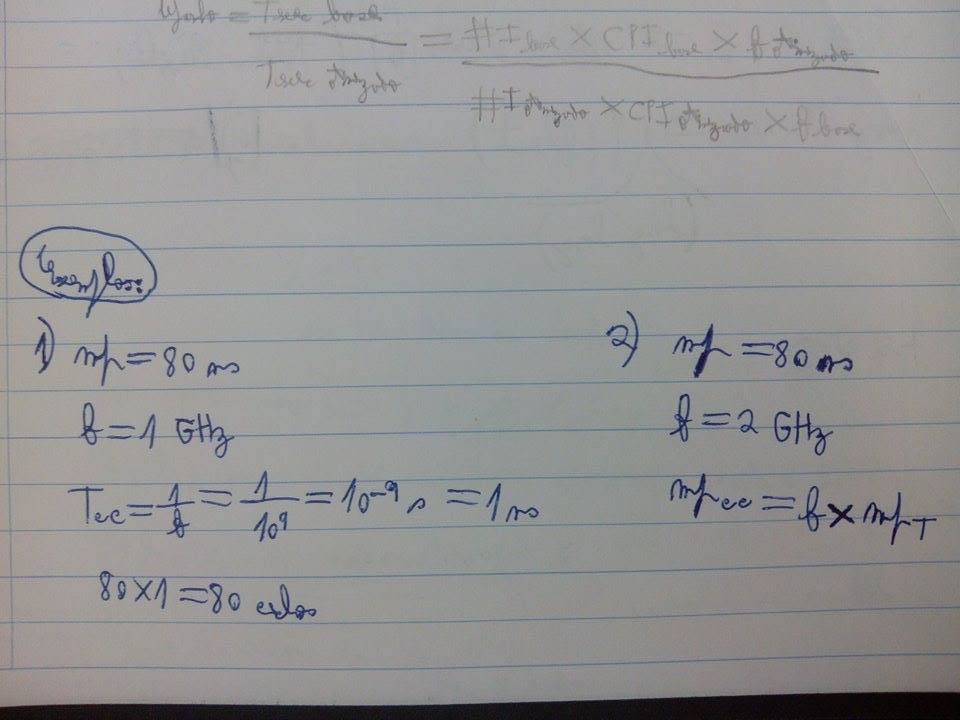 Ganho = Texec base / Texec otimizado = #I base × CPI base × f otimizado / #I otimizado × CPI otimizado × f base
Exemplos:
1) mp = 80 ns
f = 1 GHz
Tcc = 1/f = 1/10⁹ = 10⁻⁹ s = 1 ns
80 × 1 = 80 ciclos
2) mp = 80 ns
f = 2 GHz
mpcc = f × mpT